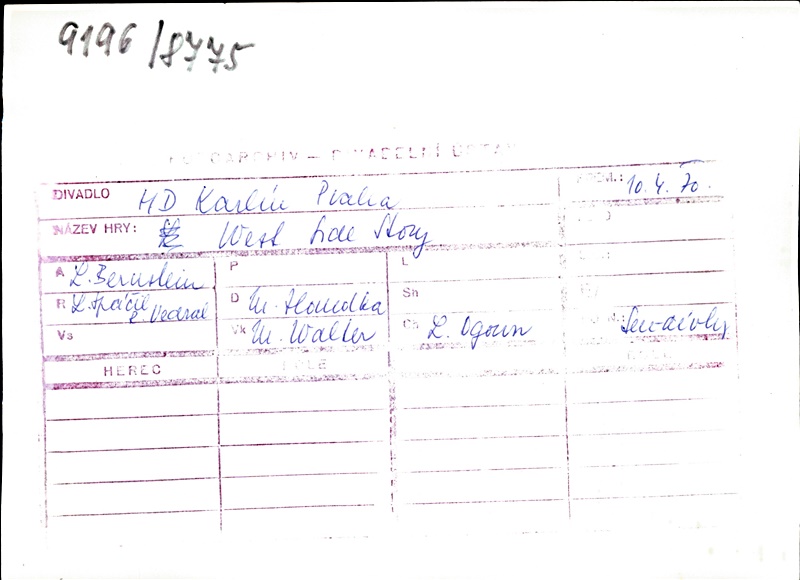 9196/8775
FOTOARCHIV – DIVADELNÍ ÚSTAV
DIVADLO HD Karlín Praha
10.4.70.
NÁZEV HRY: West Side Story
A L. Bernstein P L
R L. Spáčil D M. Hloudka Sh
E. Vedral
Vs Vk M. Walter Ch L. Ogoun
HEREC ROLE